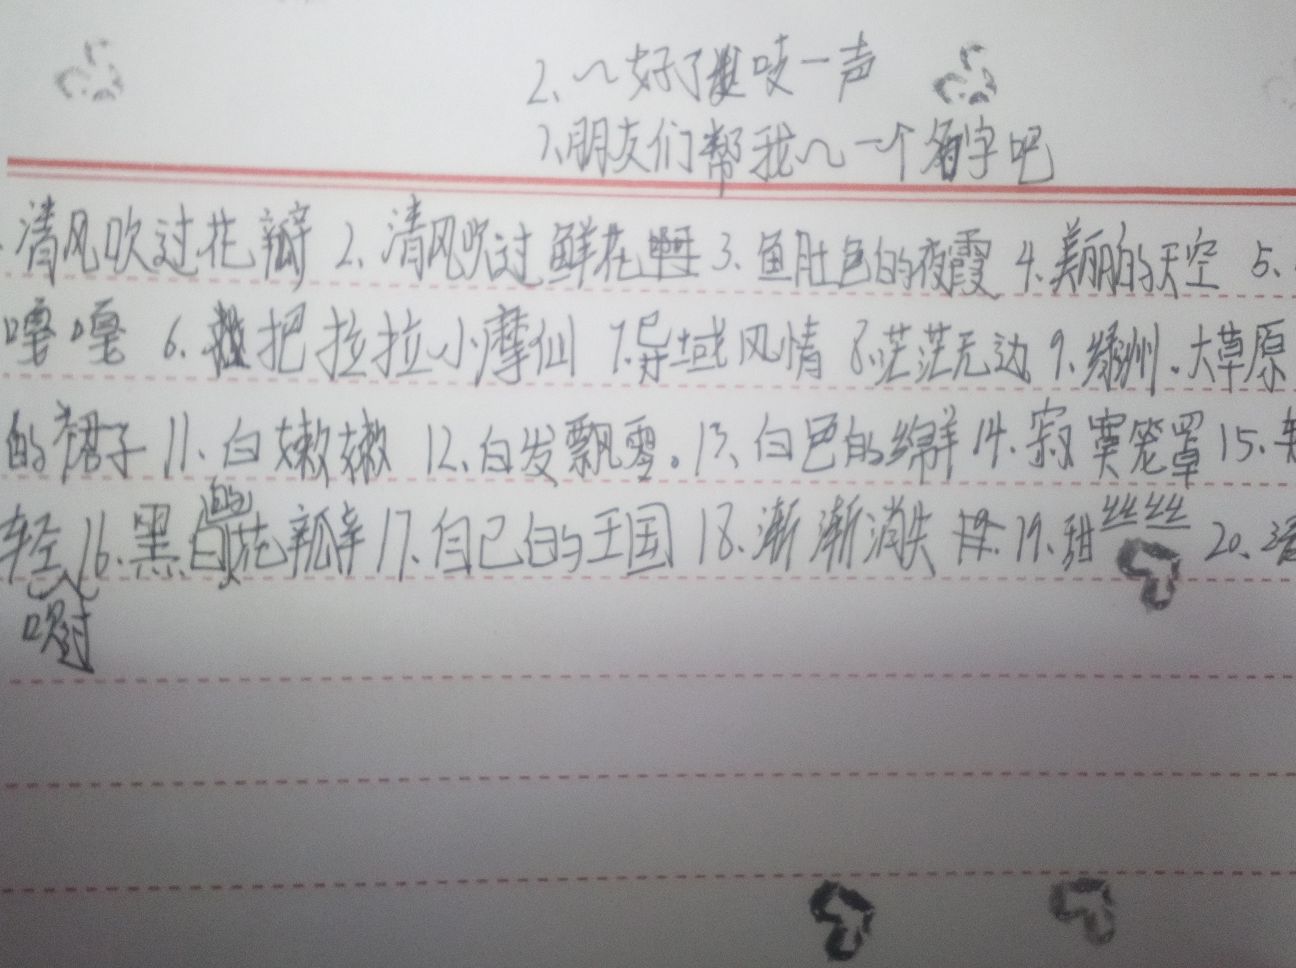 2、～好了吱一声
1、朋友们帮我～一个名字吧
清风吹过花瓣 2、清风吹过鲜花 3、鱼肚色的夜霞 4、美丽的天空 5、
嘎嘎 6、把拉拉小摩仙 7、异域风情 8、茫茫无边 9、绿洲、大草原
的裙子 11、白嫩嫩 12、白发飘零。13、白色的绵羊 14、寂寞笼罩 15、
轻 16、黑白的花瓣 17、自己的王国 18、渐渐消失 19、甜丝丝 20、清